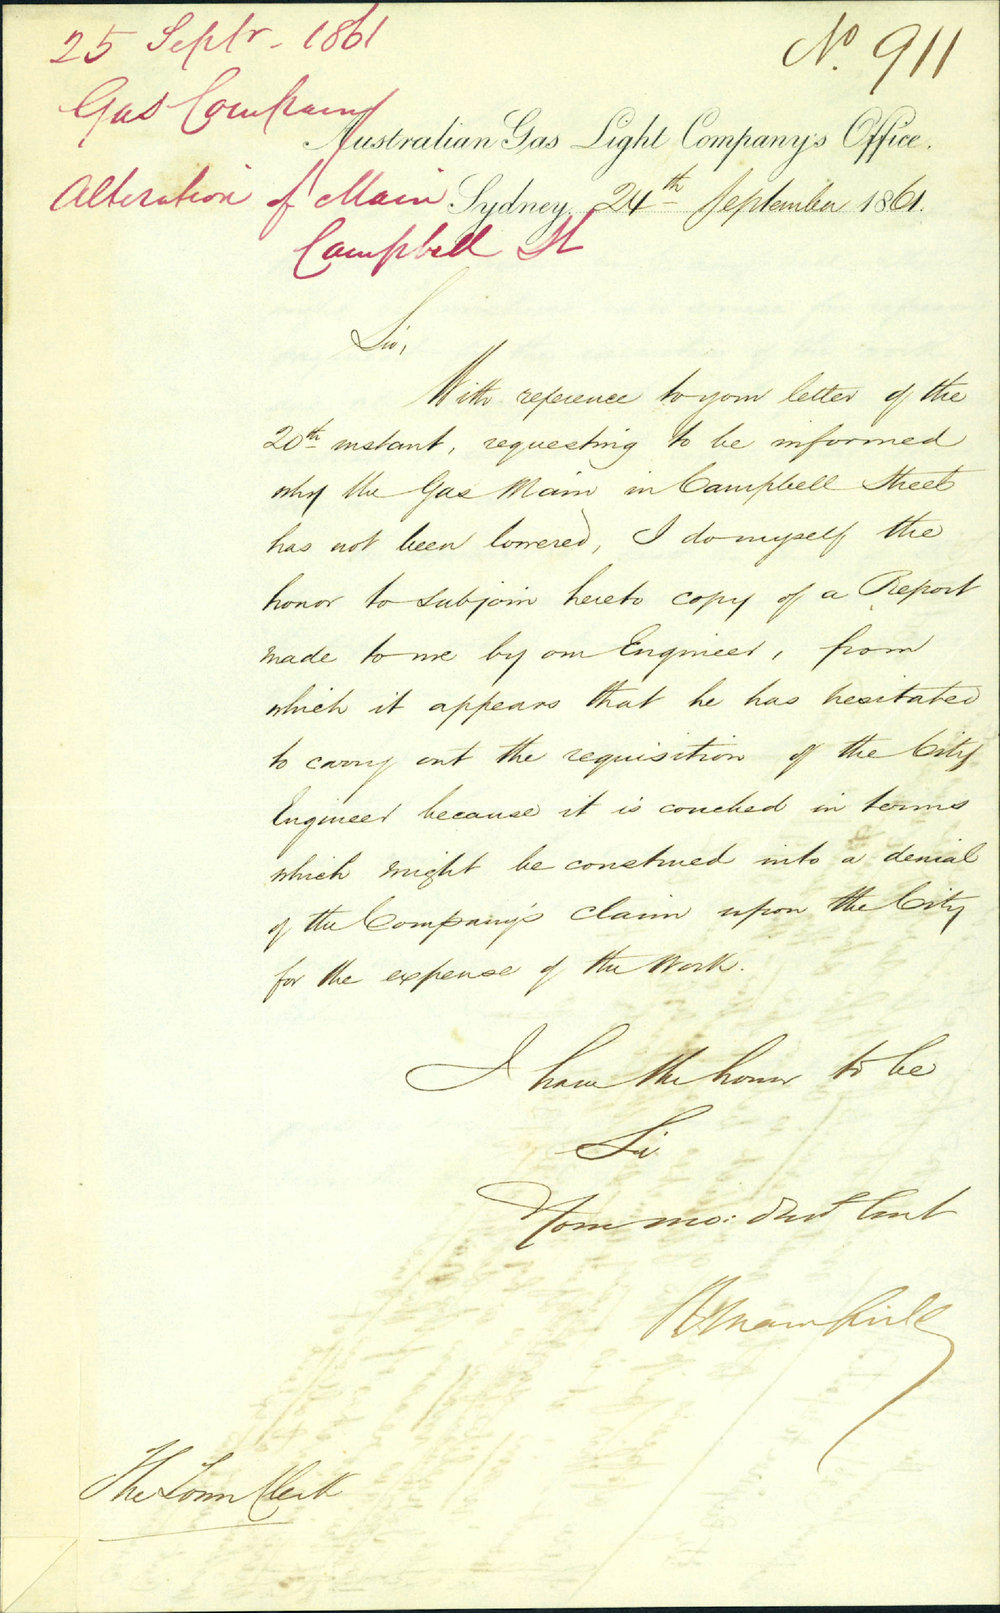 25 Septr. 1861
No. 911
Gas Company
Australian Gas Light Company's Office.
Alteration of Main
Sydney, 24th September 1861.
Campbell St
Sir,
With reference to your letter of the
20th instant, requesting to be informed
why the Gas Main in Campbell Street
has not been lowered, I do myself the
honor to subjoin hereto copy of a Report
made to me by our Engineer, from
which it appears that he has hesitated
to carry out the requisition of the City
Engineer because it is couched in terms
which might be construed into a denial
of the Company's claim upon the City
for the expense of the Work.
I have the honor to be
Sir
Your mo: Obdt Servt
The Town Clerk